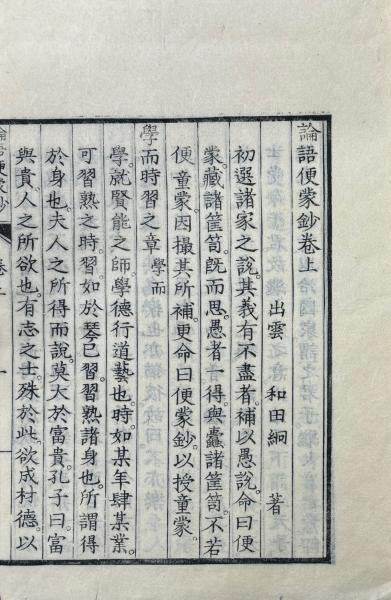 論語便蒙鈔卷上
出雲 和田絅 著
初選諸家之說。其義有不盡者。補以愚說。命曰便
蒙。藏諸筐笥。旣而思。愚者一得。與蠹諸筐笥。不若
便童蒙。因撮其所補。更命曰便蒙鈔。以授童蒙。
學而時習之章 學而
學。就賢能之師。學德行道藝也。時。如某年肆某業。
可習熟之時。習。如於琴已習。習熟諸身也。所謂得
於身也。夫人之所得而說。莫大於富貴。孔子曰。富
與貴。人之所欲也。有志之士。殊於此。欲成材德。以
論語便蒙鈔
卷上
一